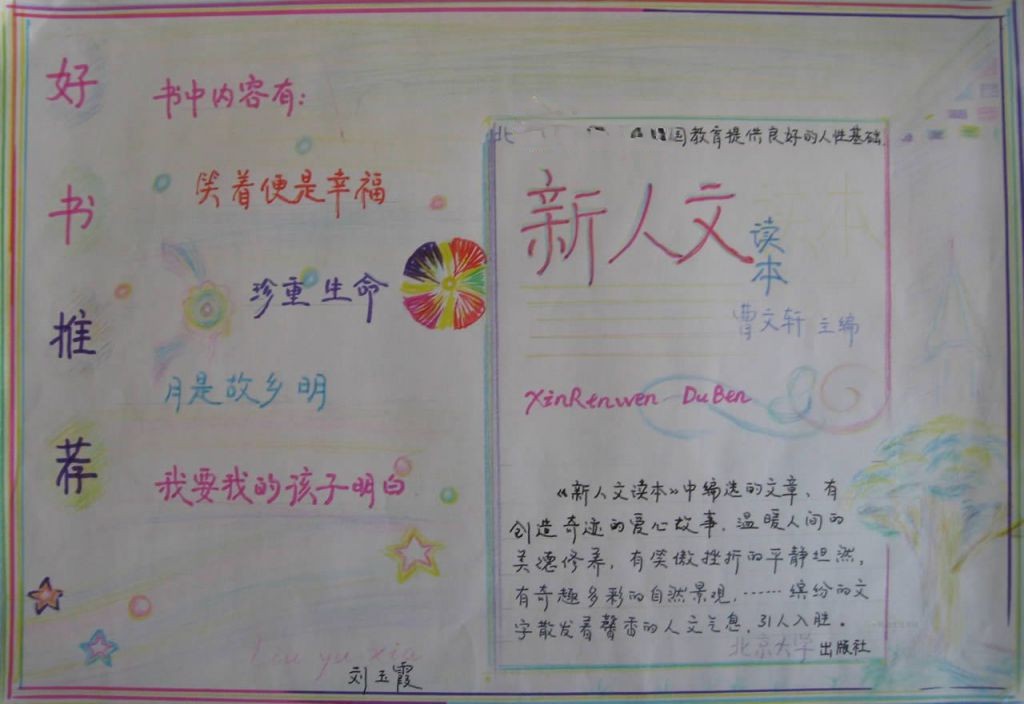 好书推荐
书中内容有:
笑着便是幸福
珍重生命
月是故乡明
我要我的孩子明白
Liu yu xia
刘玉霞
北
国教育提供良好的人性基础.
新人文
读本
曹文轩 主编
XinRenwen DuBen
《新人文读本》中编选的文章、有
创造奇迹的爱心故事、温暖人间的
美德修养，有笑傲挫折的平静坦然，
有奇趣多彩的自然景观，……缤纷的文
字散发着馨香的人文气息，引人入胜。
北京大学出版社